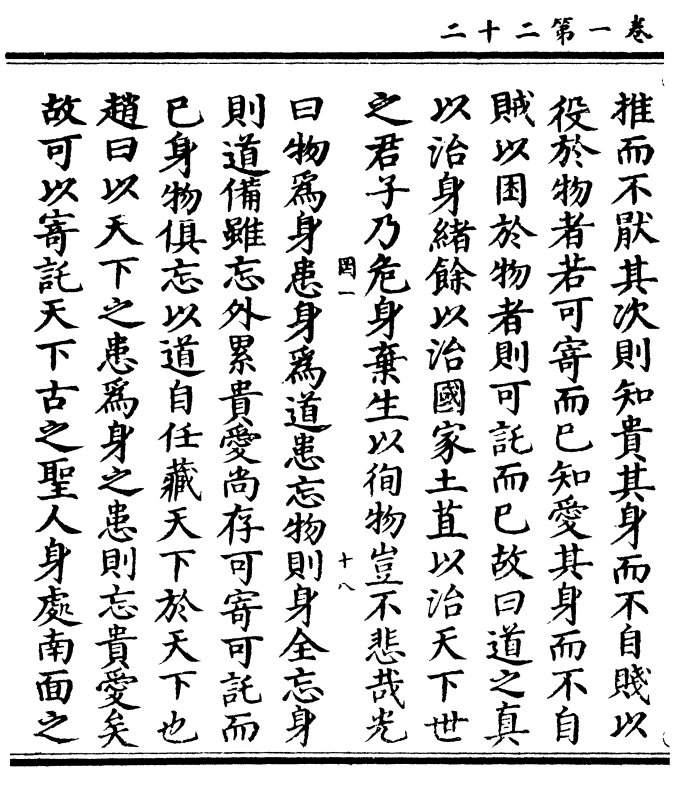 卷一第二十二
推而不厭其次則知貴其身而不自賤以
役於物者若可寄而已知愛其身而不自
賊以困於物者則可託而已故曰道之真
以治身緒餘以治國家土苴以治天下世
之君子乃危身棄生以徇物豈不悲哉光
罔一
十八
曰物爲身患身爲道患忘物則身全忘身
則道備雖忘外累貴愛尚存可寄可託而
已身物俱忘以道自任藏天下於天下也
趙曰以天下之患爲身之患則忘貴愛矣
故可以寄託天下古之聖人身處南面之